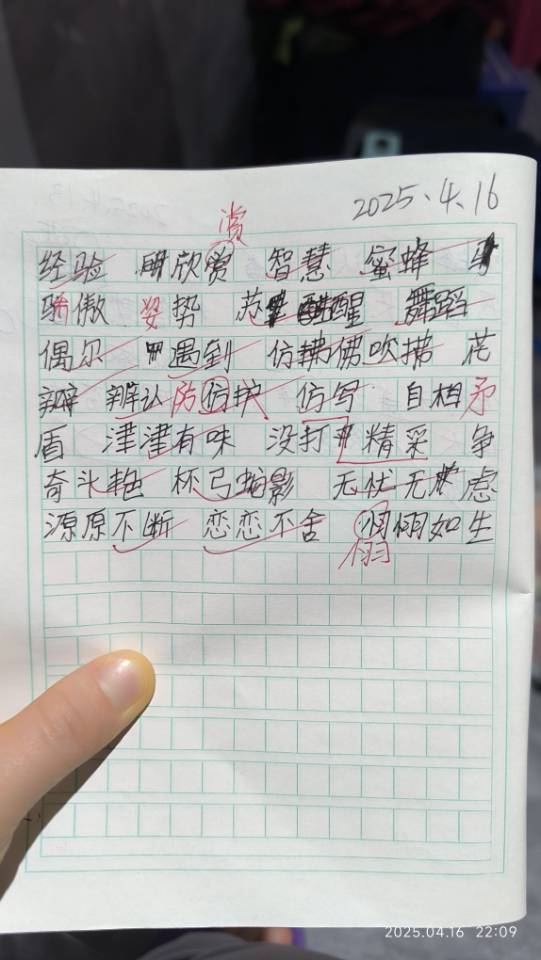 2025.4.16
赏
经验 欣赏 智慧 蜜蜂
骄傲 姿势 苏醒 舞蹈
偶尔 遇到 仿佛 吹拂 花
瓣 辨认 防护 仿写 自相矛
盾 津津有味 没打 精采 争
奇斗艳 杯弓蛇影 无忧无虑
源原不断 恋恋不舍 栩如生
栩
2025.04.16 22:09